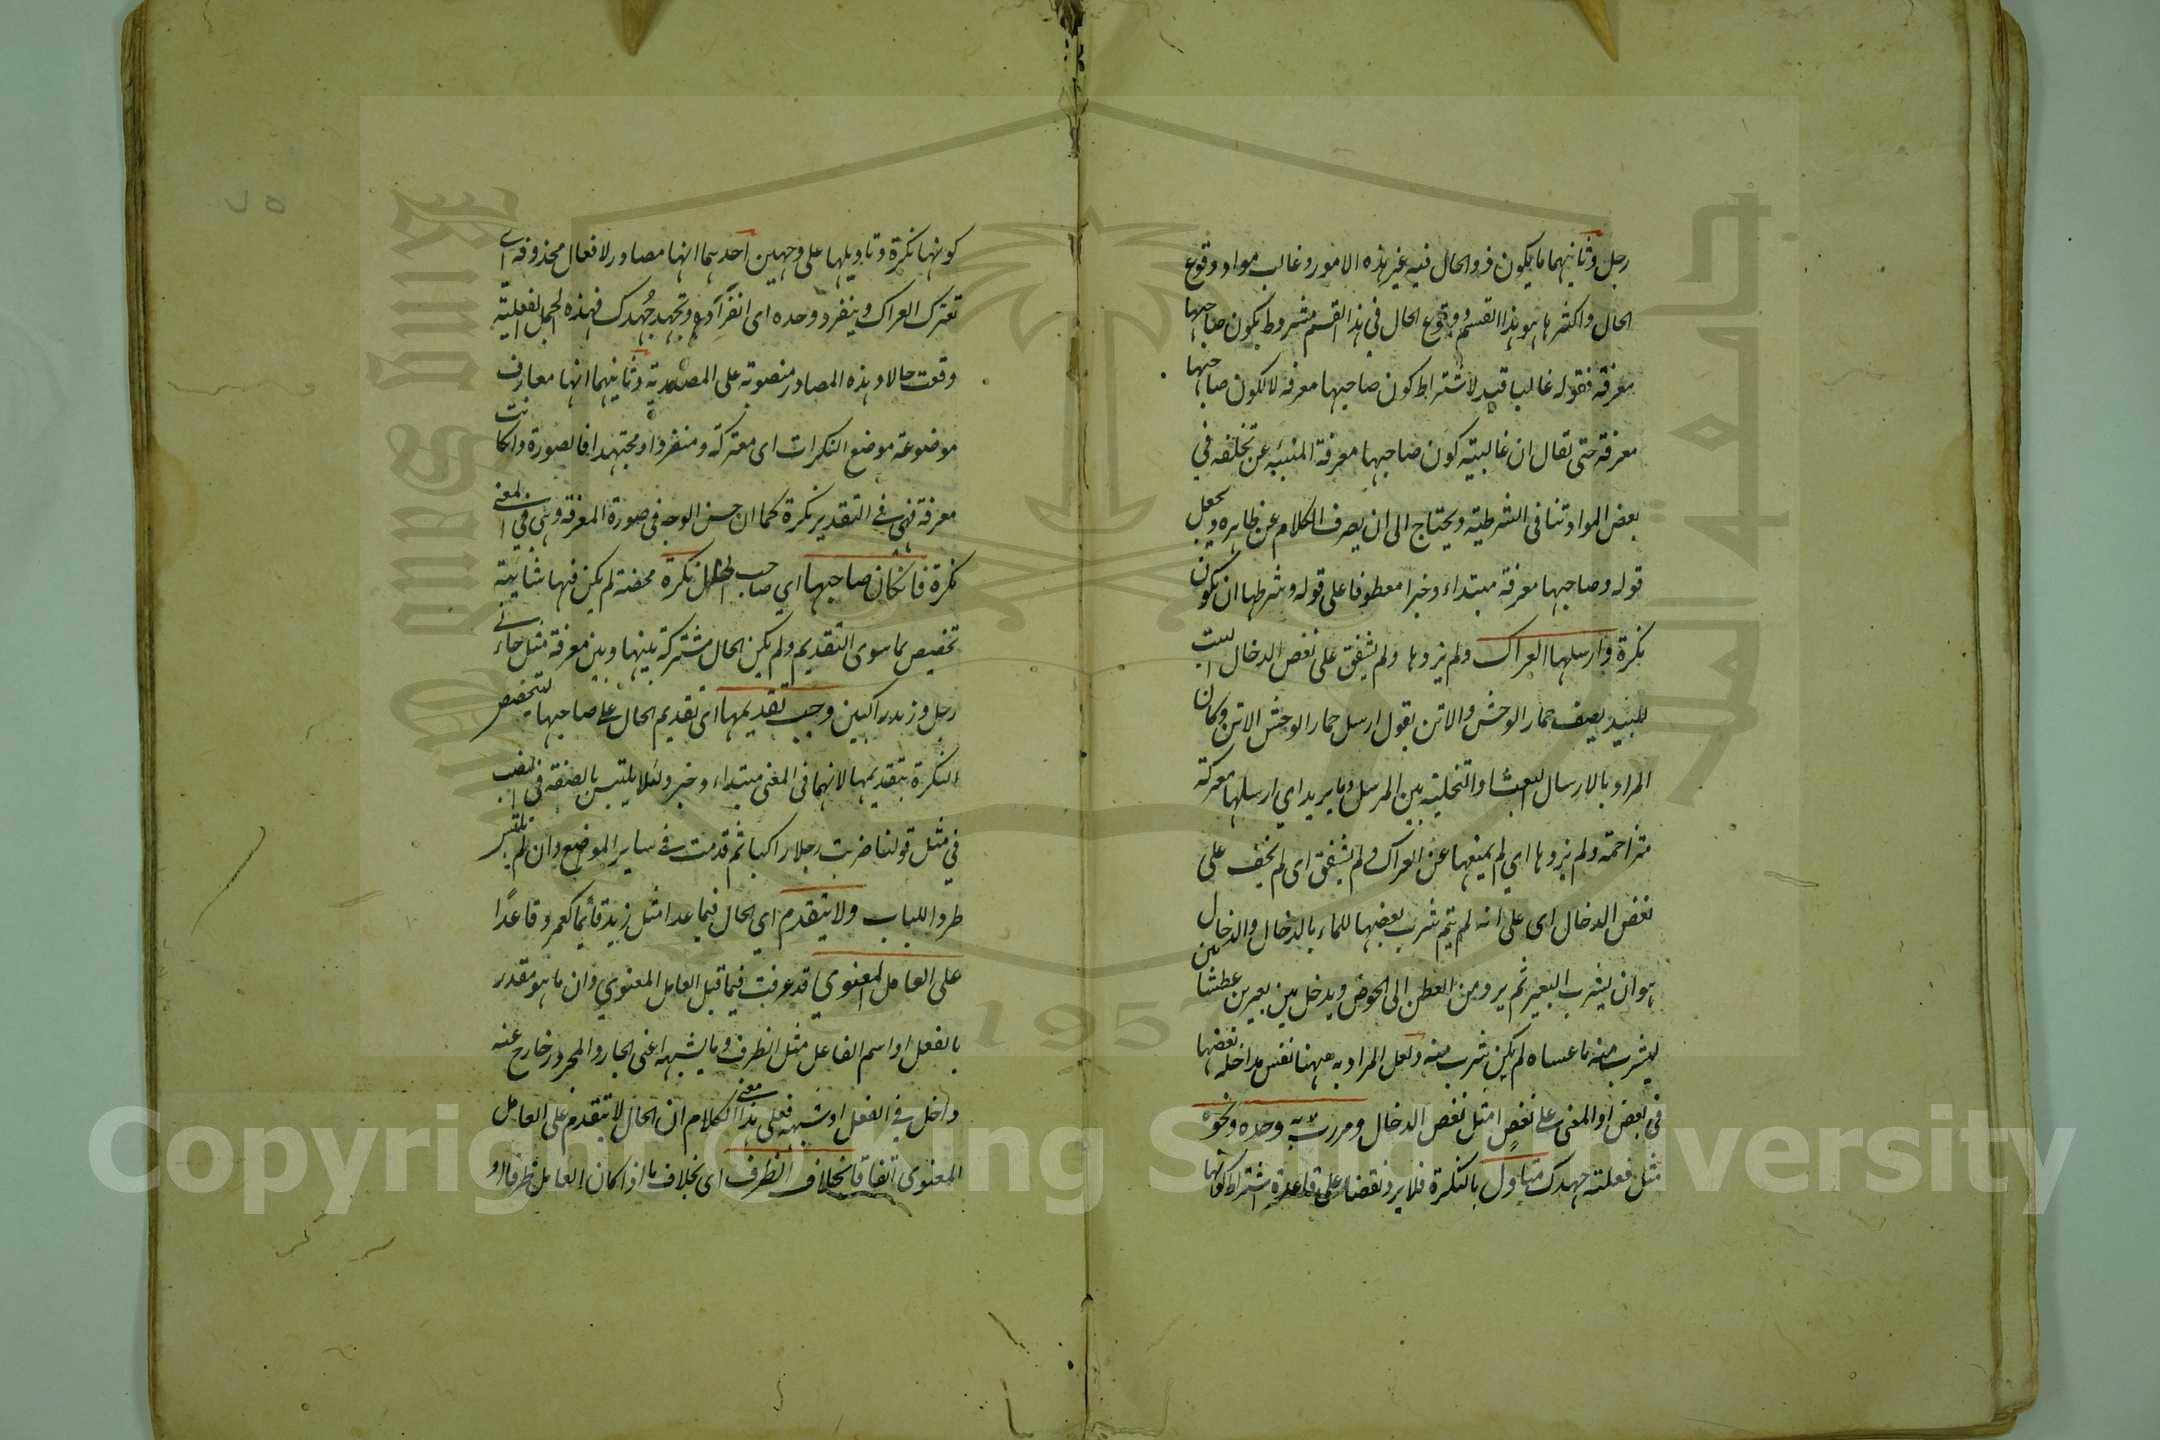 رجل وثانيهما ما يكون ذو الحال فيه غير هذه الامور وغالب مواد وقوع
الحال واكثرها هو هذا القسم ووقوع الحال في هذا القسم مشروط بكون صاحبها
معرفة فقوله غالبا قيد لاشتراط كون صاحبها معرفة لا لكون صاحبها
معرفة حتى يقال ان غالبية كون صاحبها معرفة المنبئة عن تخلفه في
بعض المواد تنافي الشرطية ويحتاج الى ان يصرف الكلام عن ظاهره ويجعل
قوله وصاحبها معرفة مبتداء وخبرا معطوفا على قوله وشرطها ان يكون
نكرة وارسلها العراك ولم يزدها ولم يشفق على نغص الدخال البيت
للبيد يصف حمار الوحش والاتن يقول ارسل حمار الوحش الاتن وكان
المراد بالارسال البعث او التخلية بين المرسل وما يريد اي ارسلها معتركة
متزاحمة ولم يزدها اي لم يمنعها عن العراك ولم يشفق اى لم يخف على
نغص الدخال اى على انه لم يتم شرب بعضها للماء بالدخال والدخال
هو ان يشرب البعير ثم يرد من العطن الى الحوض ويدخل بين بعيرين عطشانين
ليشرب منه ما عساه لم يكن شرب منه ولعل المراد به ههنا نفس مداخلة بعضها
في بعض او المعنى على نغص مثل نغص الدخال ومررت به وحده ونحوه
مثل فعلته جهدك متاول بالنكرة فلا يرد نقضا على قاعدة اشتراط كونها
كونها نكرة وتاويلها على وجهين احدهما انها مصادر لافعال محذوفة اى
تعترك العراك وينفرد وحده اى انفراده وتجهد جهدك فهذه الجمل الفعلية
وقعت حالا وهذه المصادر منصوبة على المصدرية وثانيهما انها معارف
موضوعة موضع النكرات اى معتركة ومنفردا ومجتهدا فالصورة وان كانت
معرفة فهي في التقدير نكرة كما ان حسن الوجه في صورة المعرفة وهي في المعنى
نكرة فان كان صاحبها اي صاحب الحال نكرة محضة لم يكن فيها شائبة
تخصيص بما سوى التقديم ولم يكن الحال مشتركة بينها وبين معرفة مثل جاءني
رجل وزيد راكبين وجب تقديمها اى تقديم الحال على صاحبها لتخصيص
النكرة بتقديمها لانهما في المعنى مبتداء وخبر ولئلا يلتبس بالصفة في النصب
في مثل قولنا ضربت رجلا راكبا ثم قدمت في ساير المواضع وان لم تلتبس
طردا للباب ولا يتقدم اي الحال فيما عدا مثل زيد قائما كعمرو قاعدا
على العامل المعنوي قد عرفت فيما قبل العامل المعنوي وان ما هو مقدر
بالفعل او اسم الفاعل مثل الظرف وما يشبهه اعنى الجار والمجرور خارج عنه
داخل في الفعل او شبهه فعلى هذا معنى الكلام ان الحال لا يتقدم على العامل
المعنوى اتفاقا بخلاف الظرف اى بخلاف ما اذا كان العامل ظرفا او
Copyright © King Saud University
King Saud University
جامعة الملك سعود
1957